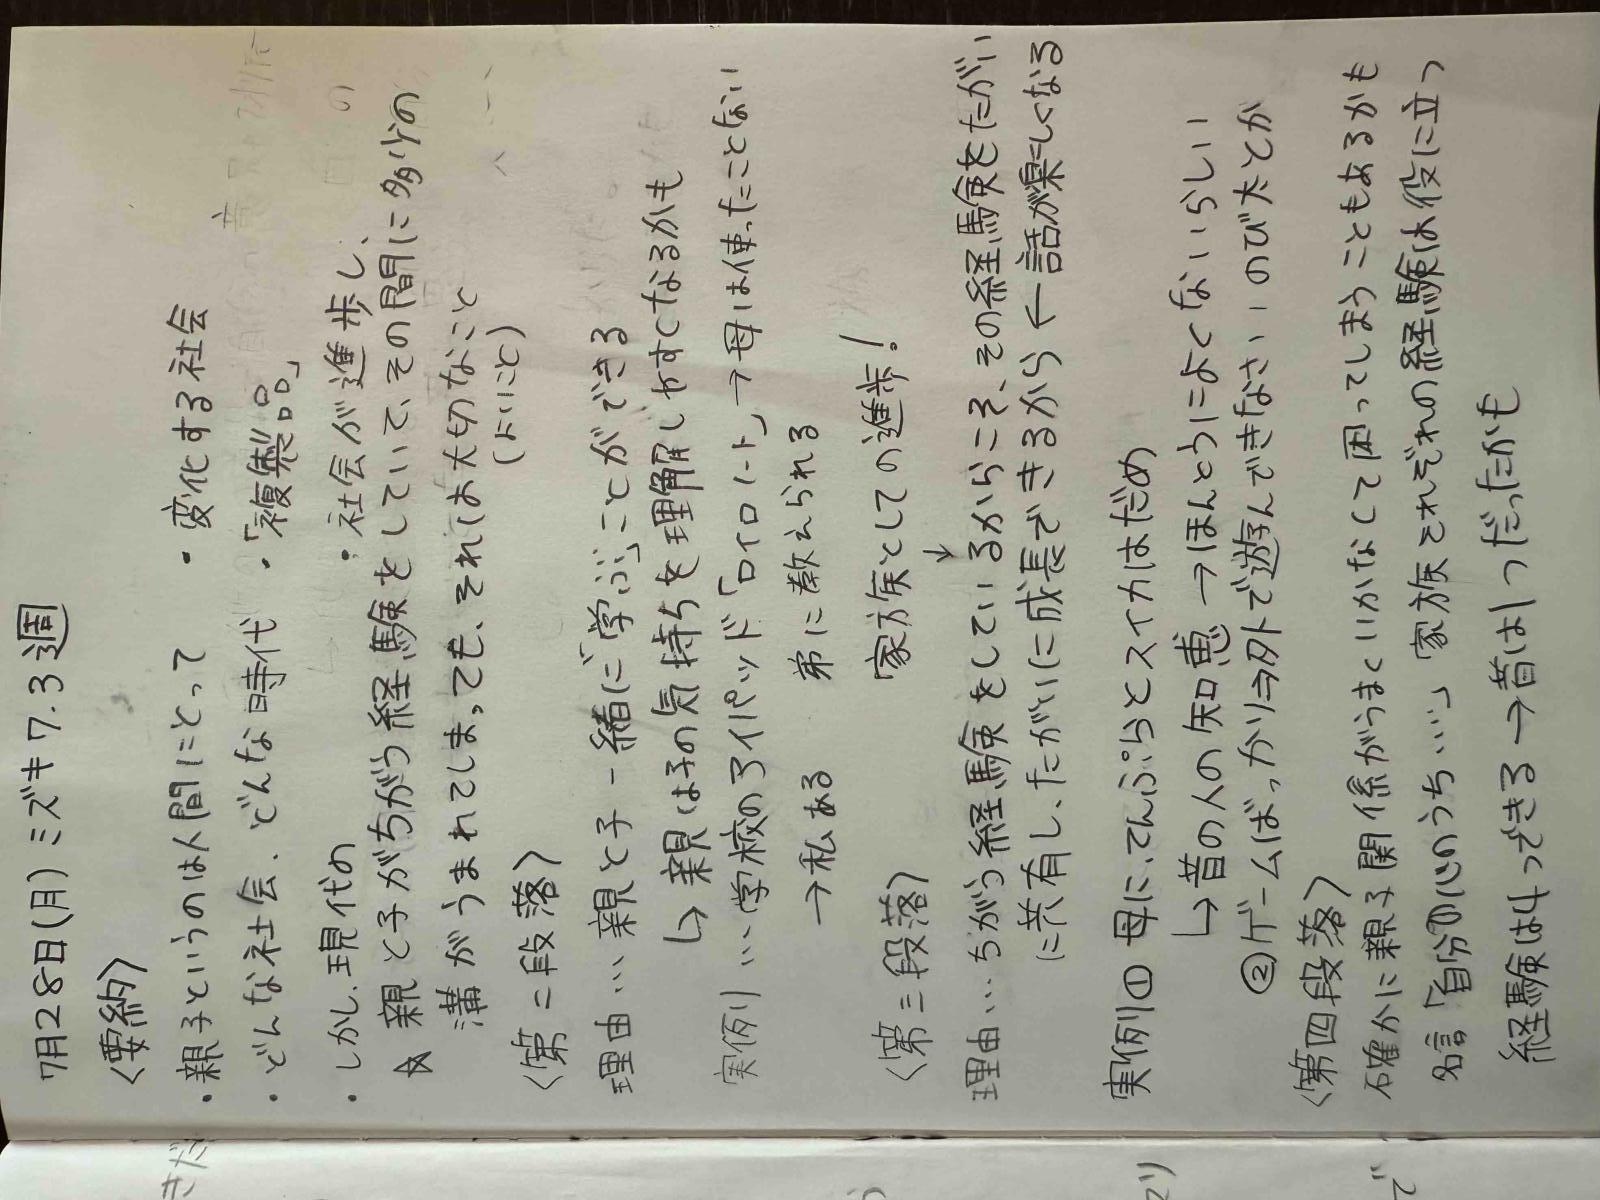 7月28日(月)ミズキ7.3週
<要約>
・親子というのは人間にとって ・変化する社会
・どんな社会、どんな時代 ・「複製品」
・しかし、現代の ・社会が進歩し、
☆ 親と子がちがう経験をしていて、その間に多少の
溝がうまれてしまっても、それは大切なこと
(よいこと)
<第二段落>
理由…親と子一緒に「学ぶ」ことができる
↳親は子の気持ちを理解しやすくなるかも
実例…学校のアイパッド「ロイロノート」→母は使ったことない
→私ある 弟に教えられる
<第三段落> 家族としての進歩!
↓
理由…ちがう経験をしているからこそ、その経験をたがい
に共有し、たがいに成長できるから←話が楽しくなる
実例① 母に、てんぷらとスイカはだめ
↳昔の人の知恵→ほんとうによくないらしい
②ゲームばっかり⇒外で遊んできなさい!のび太とか
<第四段落>
確かに親子関係がうまくいかなくて困ってしまうこともあるかも
名言「自分の心のうち…」家族それぞれの経験は役に立つ
経験は4つできる→昔は1つだったかも